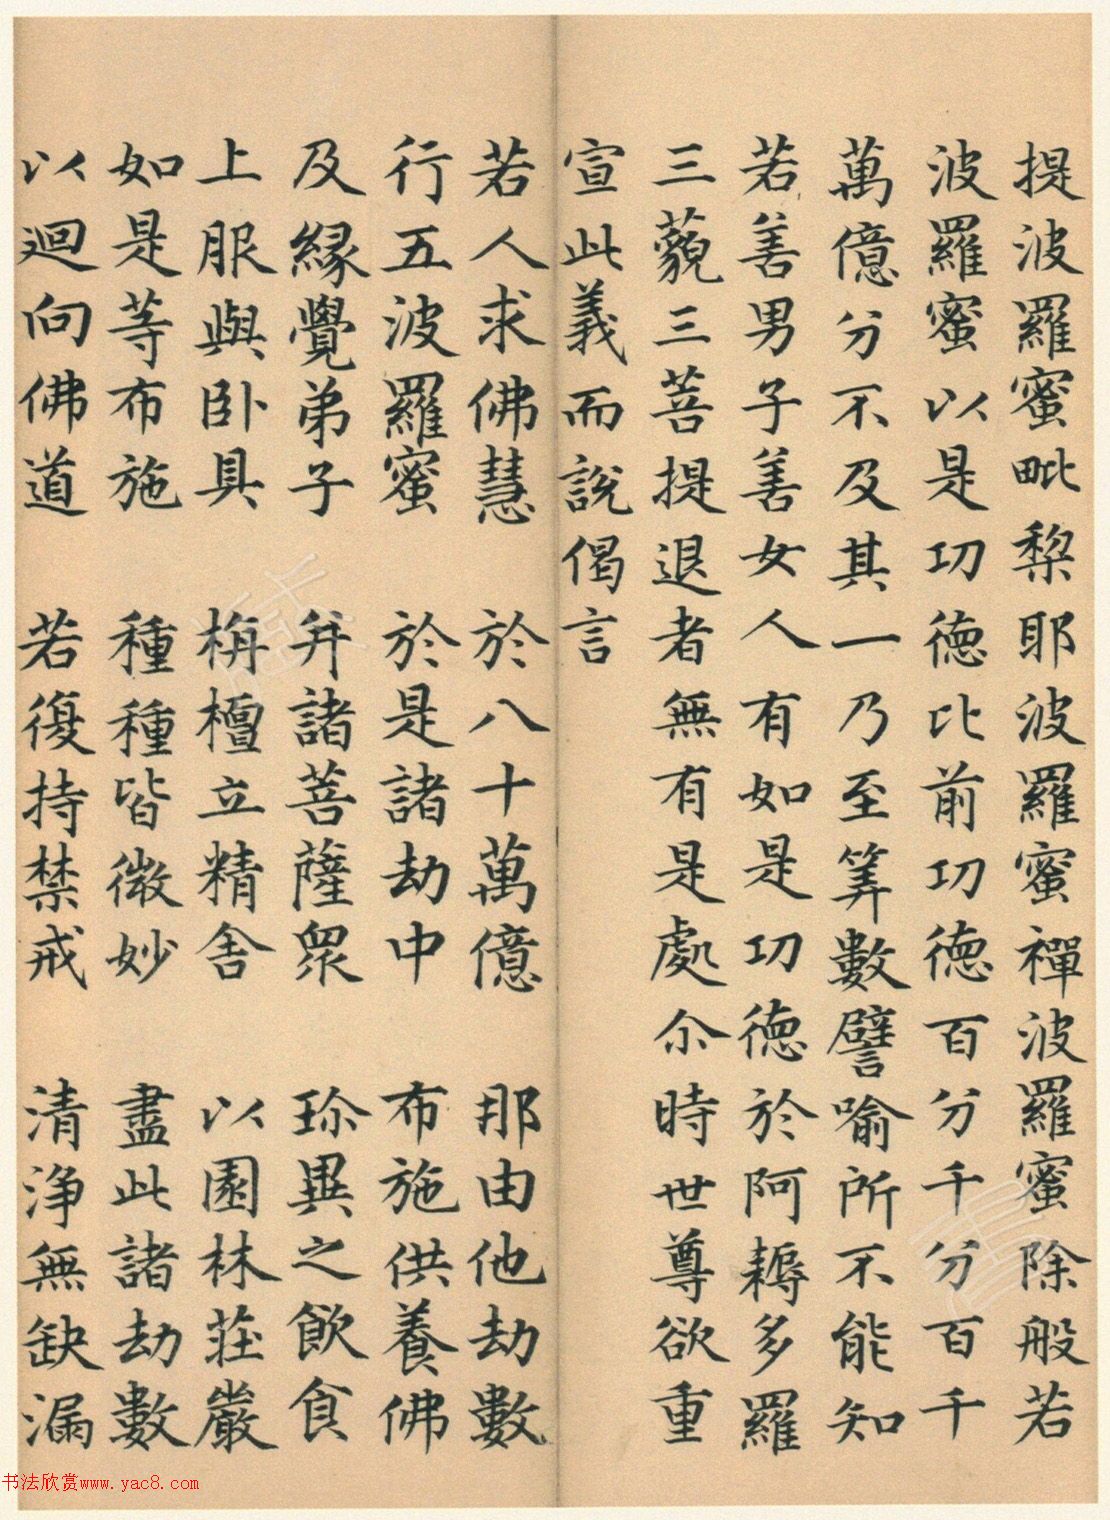 提波羅蜜毗棃耶波羅蜜禪波羅蜜除般若
波羅蜜以是功德比前功德百分千分百千
萬億分不及其一乃至筭數譬喻所不能知
若善男子善女人有如是功德於阿耨多羅
三藐三菩提退者無有是處尒時世尊欲重
宣此義而說偈言
若人求佛慧 於八十萬億 那由他劫數
行五波羅蜜 於是諸劫中 布施供養佛
及緣覺弟子 并諸菩薩眾 珎異之飲食
上服與臥具 栴檀立精舍 以園林莊嚴
如是等布施 種種皆微妙 盡此諸劫數
以迴向佛道 若復持禁戒 清淨無缺漏
书法欣赏www.yac8.com